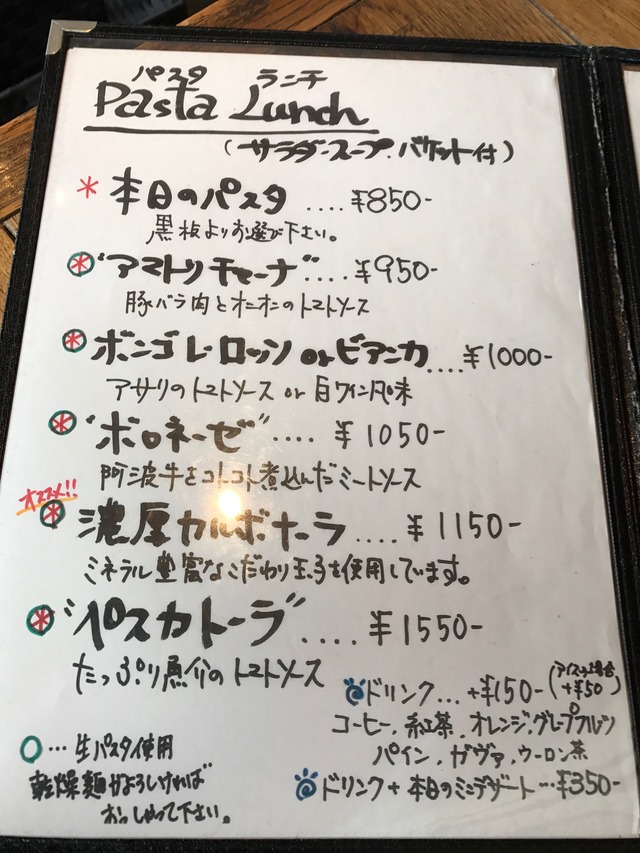 パスタ ランチ
Pasta Lunch
(サラダ・スープ、バケット付)
* 本日のパスタ ....¥850-
黒板よりお選び下さい。
* "アマトリチャーナ"....¥950-
豚バラ肉とオニオンのトマトソース
* ボンゴレ・ロッソ or ビアンカ ....¥1000-
アサリのトマトソース or 白ワイン風味
* "ボロネーゼ" .... ¥1050-
阿波牛をコトコト煮込んだミートソース
オススメ!!
* 濃厚カルボナーラ ....¥1150-
ミネラル豊富なこだわり玉子を使用しています。
* "ペスカトーラ" ....¥1550-
たっぷり魚介のトマトソース
ドリンク...+¥150- (アイスの場合 +¥50)
コーヒー、紅茶、オレンジ、グレープフルーツ
パイン、ガヴァ、ウーロン茶
ドリンク+本日のミニデザート...¥350-
○...生パスタ使用
乾燥麺がよろしければ
おっしゃって下さい。